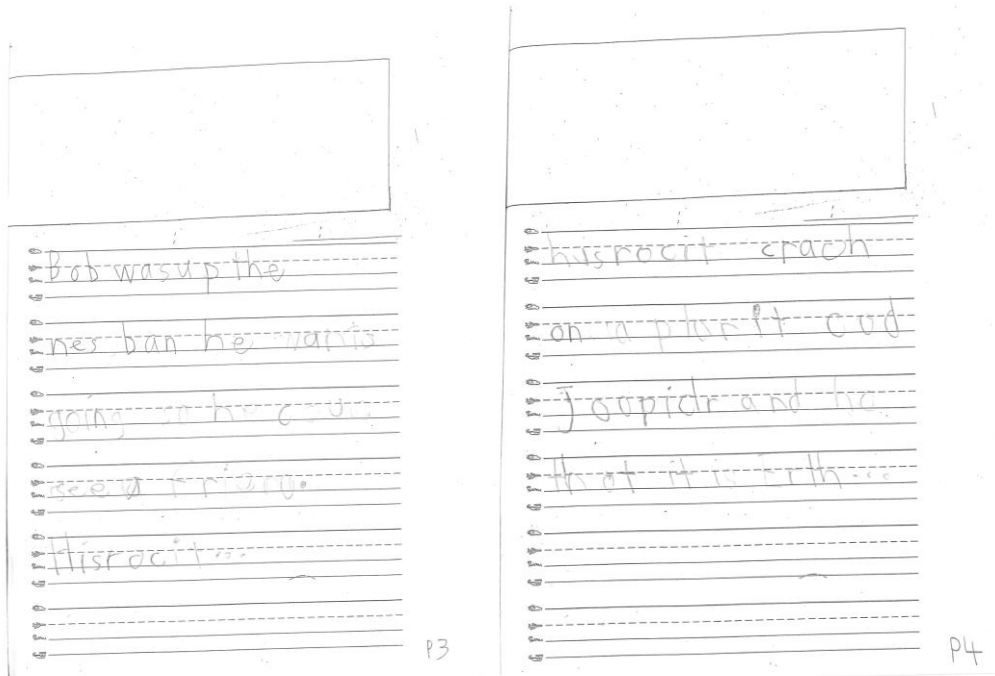 Bob was up the
nes ban he wants
going so he c
see a friend.
His rocit...
P3
his rocit crach
on a planit cod
Joopidr and he
that it is Erth...
P4